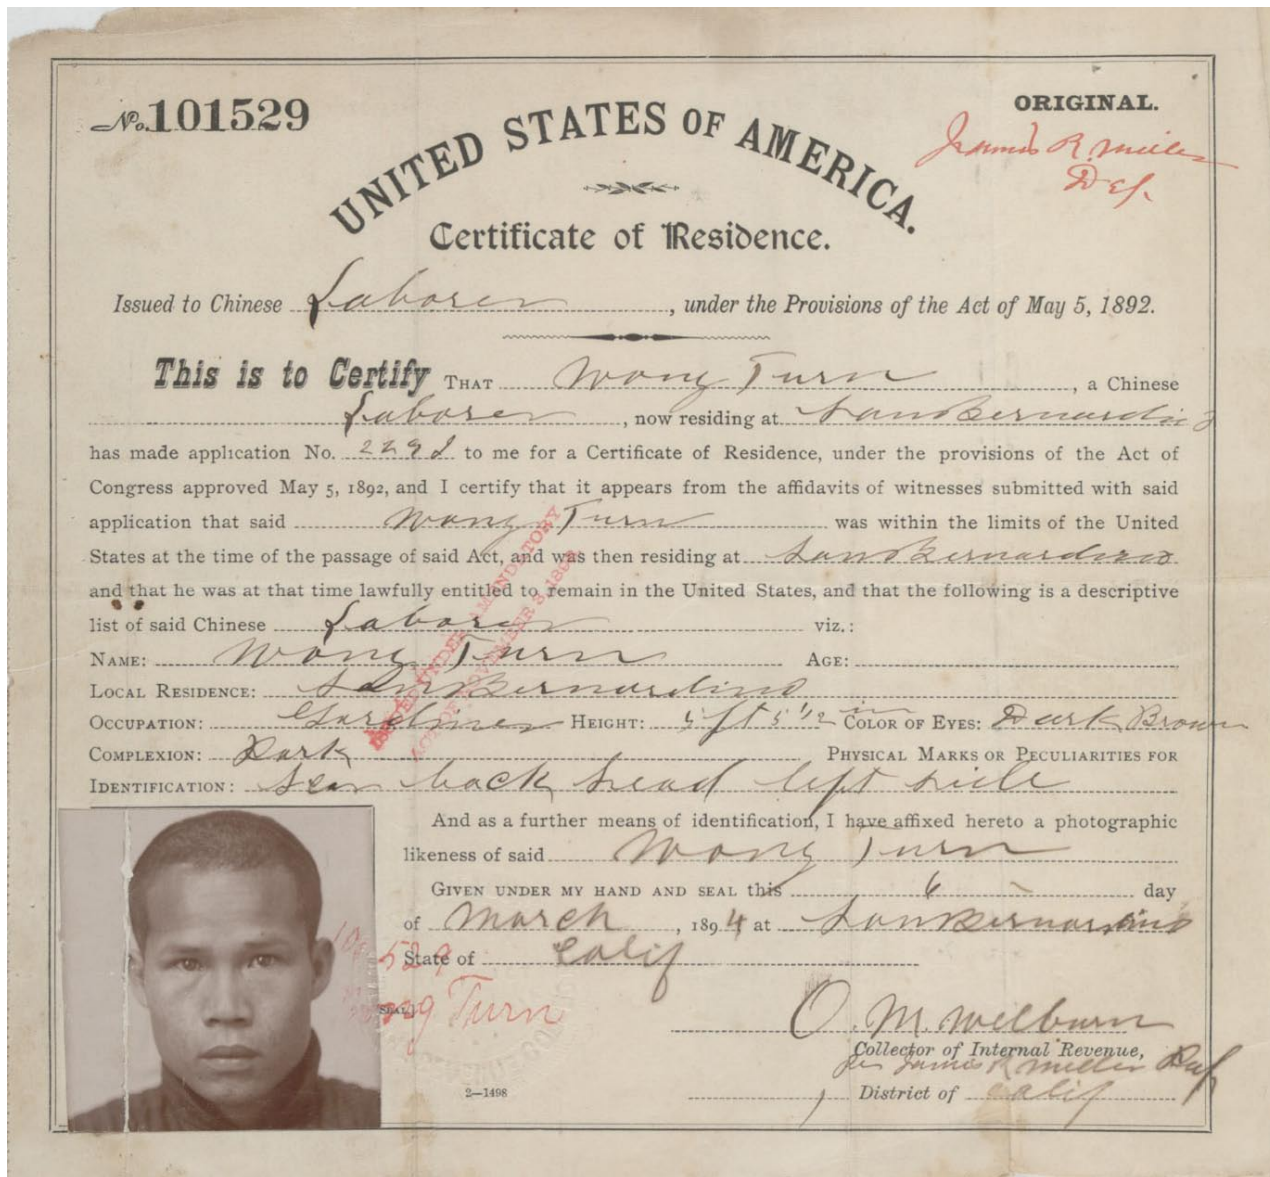 No. 101529
ORIGINAL.
James R. Miller
Dep.
UNITED STATES OF AMERICA.
Certificate of Residence.
Issued to Chinese Laborer, under the Provisions of the Act of May 5, 1892.
This is to Certify THAT Wong Turn, a Chinese
Laborer, now residing at San Bernardino
has made application No. 2292 to me for a Certificate of Residence, under the provisions of the Act of
Congress approved May 5, 1892, and I certify that it appears from the affidavits of witnesses submitted with said
application that said Wong Turn was within the limits of the United
States at the time of the passage of said Act, and was then residing at San Bernardino
and that he was at that time lawfully entitled to remain in the United States, and that the following is a descriptive
list of said Chinese Laborer viz.:
NAME: Wong Turn AGE:
LOCAL RESIDENCE: San Bernardino
OCCUPATION: Gardiner HEIGHT: 5 ft 5 1/2 in COLOR OF EYES: Dark Brown
COMPLEXION: Dark PHYSICAL MARKS OR PECULIARITIES FOR
IDENTIFICATION: Scar back head left side
ISSUED UNDER AMENDATORY
ACT OF NOVEMBER 3, 1893
And as a further means of identification, I have affixed hereto a photographic
likeness of said Wong Turn
GIVEN UNDER MY HAND AND SEAL this 6 day
of March, 1894 at San Bernardino
State of Calif
101529
[SEAL.]
Wong Turn
O. M. Wilburn
Collector of Internal Revenue,
per James R. Miller Dep
District of Calif
2—1498